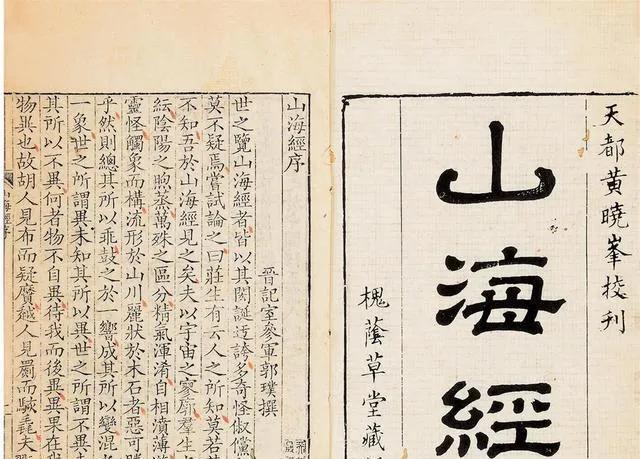 天都黄曉峯校刊
山海經
槐蔭草堂藏
山海經序
晉記室參軍郭璞撰
世之覽山海經者皆以其閎誕迂誇多奇怪俶儻
莫不疑焉嘗試論之曰莊生有云人之所知莫若
不知吾於山海經見之矣夫以宇宙之寥廓羣生
紜陰陽之煦蒸萬殊之區分精氣渾淆自相濆薄
靈怪觸象而構流形於山川麗狀於木石者惡可勝
乎然則總其所以乖鼓之於一響成其所以變混
一象世之所謂異未知其所以異世之所謂不異
其所以不異何者物不自異待我而後異異果在
物異也故胡人見布而疑黂越人見罽而駭毳夫
山海經序